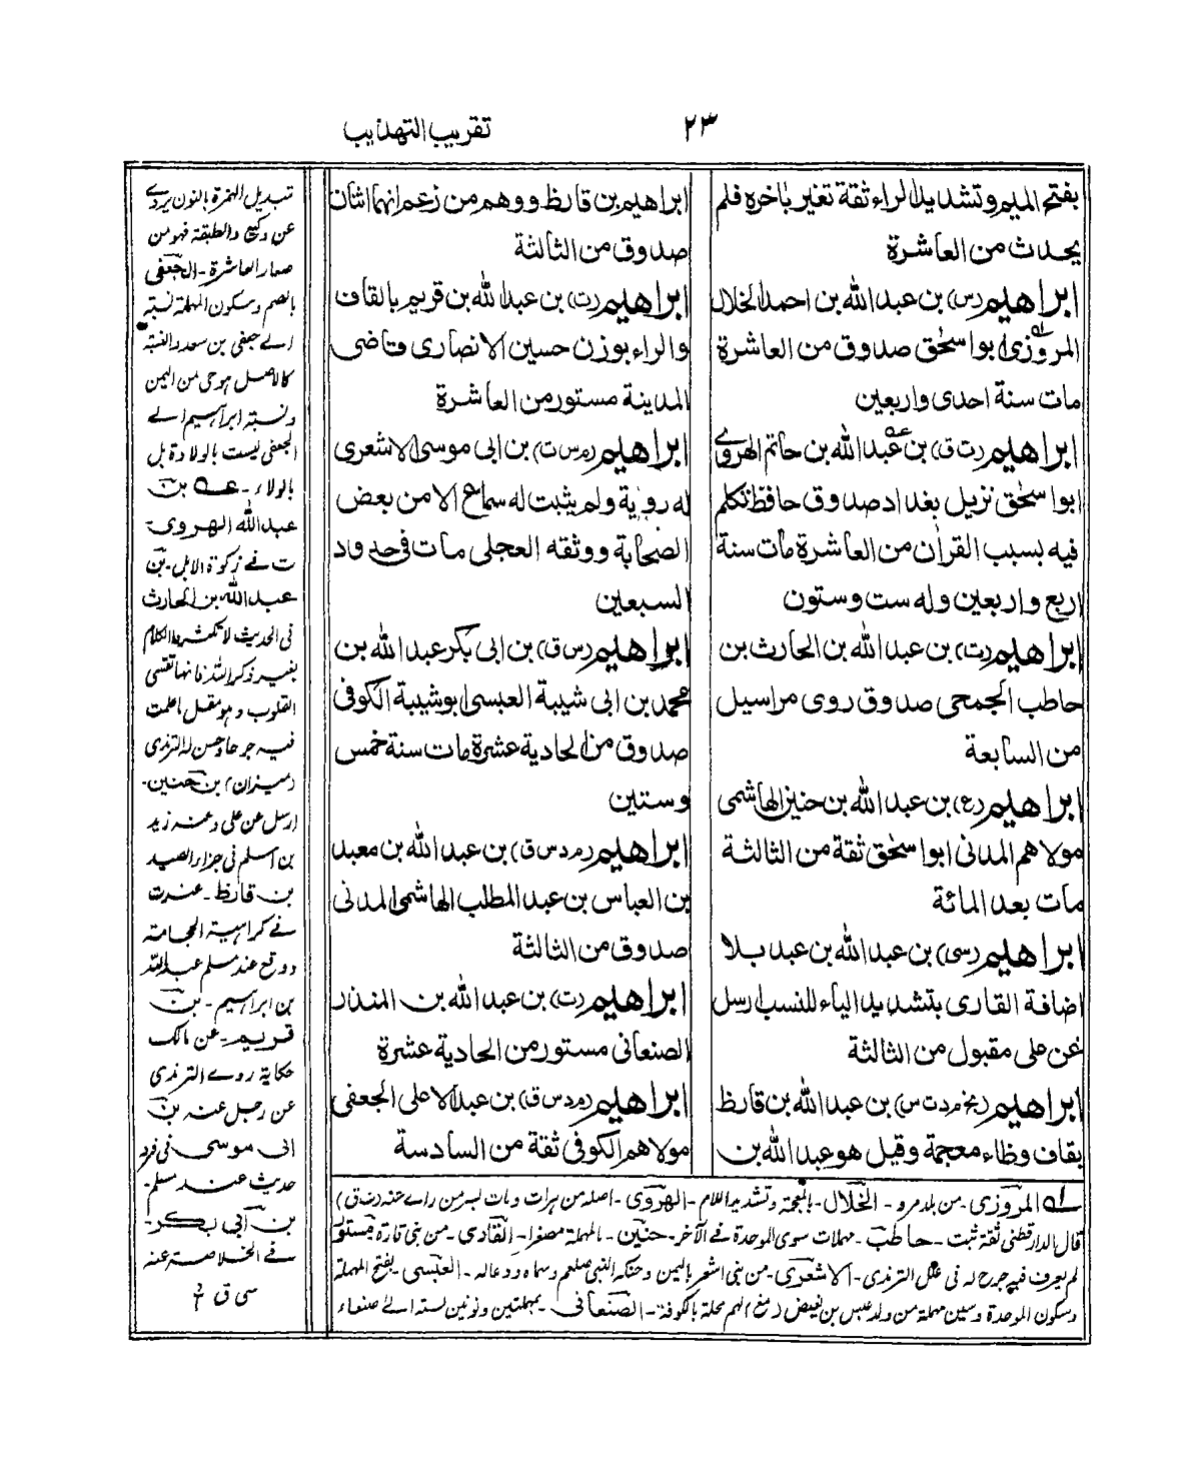 ٢٣
تقريب التهذيب
بفتح الميم وتشديد الراء ثقة تغير باخره فلم
يحدث من العاشرة
ابراهيم (س) بن عبد الله بن احمد الخلال
المروزى ابو اسحق صدوق من العاشرة
مات سنة احدى واربعين
ابراهيم (ت ق) بن عبد الله بن حاتم الهروى
ابوا سحق نزيل بغداد صدوق حافظ تكلم
فيه بسبب القران من العاشرة مات سنة
اربع واربعين وله ست وستون
ابراهيم (ت) بن عبد الله بن الحارث بن
حاطب الجمحى صدوق روى مراسيل
من السابعة
ابراهيم (ع) بن عبد الله بن حنين الهاشمى
مولاهم المدنى ابوا سحق ثقة من الثالثة
مات بعد المائة
ابراهيم (سى) بن عبد الله بن عبد بلا
اضافة القارى بتشديد الياء للنسب ارسل
عن على مقبول من الثالثة
ابراهيم (بخ م د ت س) بن عبد الله بن قارظ
بقاف وظاء معجمة وقيل هو عبد الله بن
ابراهيم بن قارظ ووهم من زعم انهما اثنان
صدوق من الثالثة
ابراهيم (ت) بن عبد الله بن قريم بالقاف
والراء بوزن حسين الانصارى قاضى
المدينة مستور من العاشرة
ابراهيم (م س ت) بن ابى موسى الاشعرى
له رؤية ولم يثبت له سماع الا من بعض
الصحابة ووثقه العجلى مات فى حدود
السبعين
ابراهيم (س ق) بن ابى بكر عبد الله بن
محمد بن ابى شيبة العبسى ابو شيبة الكوفى
صدوق من الحادية عشرة مات سنة خمس
وستين
ابراهيم (م د س ق) بن عبد الله بن معبد
بن العباس بن عبد المطلب الهاشمى المدنى
صدوق من الثالثة
ابراهيم (ت) بن عبد الله بن المنذر
الصنعانى مستور من الحادية عشرة
ابراهيم (م د س ق) بن عبد الاعلى الجعفى
مولاهم الكوفى ثقة من السادسة
تبديل الهمزة بالنون يروى
عن وكيع والطبقة فهو من
صغار العاشرة - الجعفى
بالضم وسكون المهملة نسبة
الے جعفى بن سعد والنسبة
كالاصل هو حى من اليمن
ونسبة ابراهيم الے
الجعفى ليست بالولادة بل
بالولاء - عه بن
عبد الله الهروى
ت فے زكوة الابل - بن
عبد الله بن الحارث
فى الحديث لا تكثروا الكلام
بغير ذكر الله فانها تقسى
القلوب وهو مقبل ما علمت
فيه جرحا وحسن له الترمذى
(ميزان) بن حنين -
ارسل عن على وعنه زيد
بن اسلم فى جزاء الصيد
بن قارظ - عندت
فے كراهية الحجامة
ووقع عند مسلم عبد الله
بن ابراهيم - بن
قريم - عن مالك
حكاية روے الترمذى
عن رجل عنه بن
ابى موسى فى فرد
حديث عند مسلم -
بن ابى بكر -
فے الخلاصة عنه
س ق
له المروزى - من بلد مرو - الخلال - بالمعجمة وتشديد اللام - الهروى - اصله من هرات ومات بسر من راے عنه (ت ق)
قال الدارقطنى ثقة ثبت - حاطب - مهملات سوى الموحدة فے الآخر - حنين - بالمهملة مصغرا - القارى - من بنى قارة مستور
لم يعرف فيه جرح له فى علل الترمذى - الاشعرى - من بنى اشعر باليمن وحنكه النبى صلعم وسماه ودعا له - العبسى - بفتح المهملة
وسكون الموحدة وسين مهملة من ولد عبس بن بغيض (مغ) لهم محلة بالكوفة - الصنعانى - بمهملتين ونونين نسبة الے صنعاء